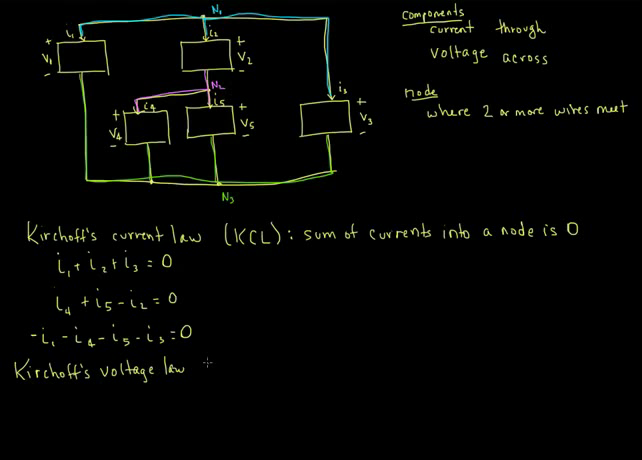 N₁
i₁
i₂
+ V₁ -
+ V₂ -
N₂
i₄
i₅
i₃
+ V₄ -
+ V₅ -
+ V₃ -
N₃
Components
current through
voltage across
node
where 2 or more wires meet
Kirchoff's current law (KCL): sum of currents into a node is 0
i₁ + i₂ + i₃ = 0
i₄ + i₅ - i₂ = 0
-i₁ - i₄ - i₅ - i₃ = 0
Kirchoff's voltage law